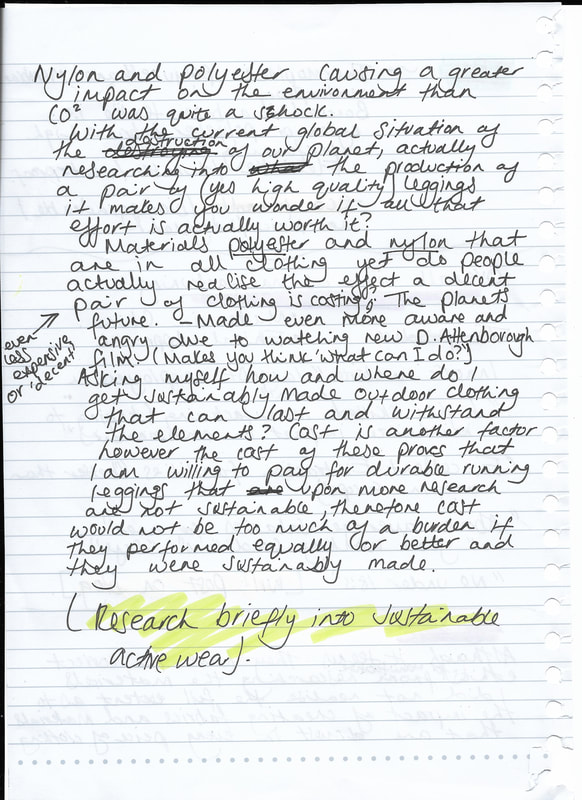 Nylon and polyester causing a greater
impact on the environment than
CO² was quite a shock.
With the current global situation of
the destroying destruction of our planet, actually
researching into the production of
a pair of (yes high quality) leggings
it makes you wonder if all that
effort is actually worth it?
Materials polyester and nylon that
are in all clothing yet do people
actually realise the effect a decent
pair of clothing is costing; The planets
future. - Made even more aware and
angry owe to watching new D. Attenborough
film (Makes you think 'what can I do?')
even
less
expensive
or 'decent'
Asking myself how and where do I
get sustainably made outdoor clothing
that can last and withstand
the elements? Cost is another factor
however the cost of these proves that
I am willing to pay for durable running
leggings that are upon more research
are not sustainable, therefore cost
would not be too much of a burden if
they performed equally or better and
they were sustainably made.
(Research briefly into sustainable
active wear).